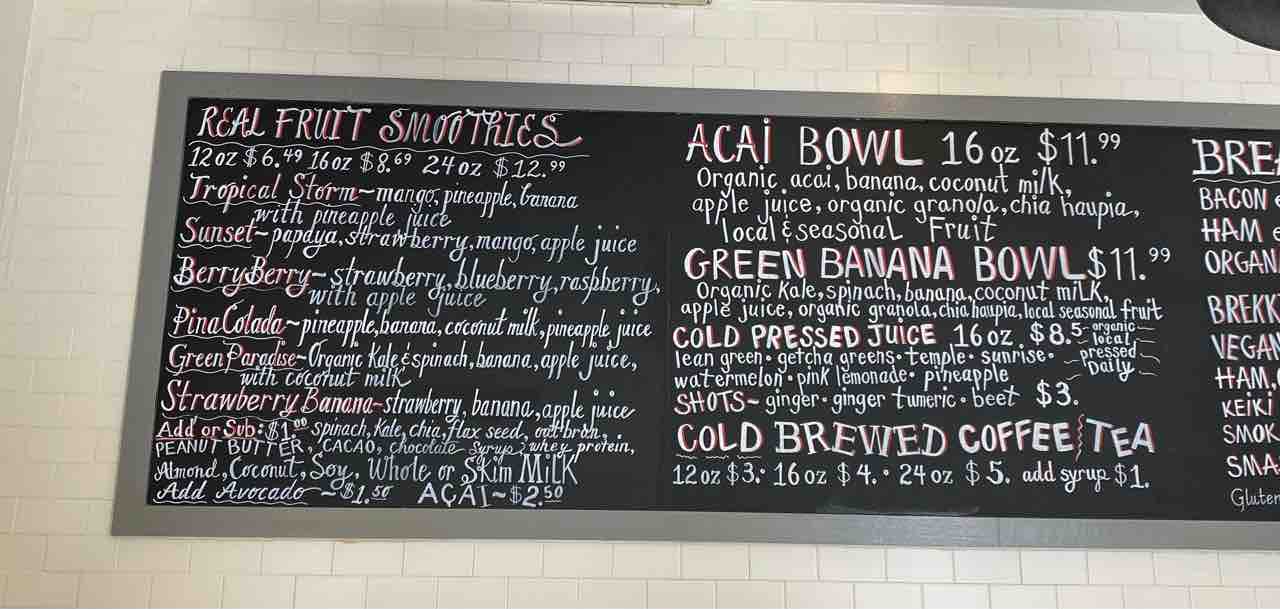 REAL FRUIT SMOOTHIES
12oz $6.49 16oz $8.69 24oz $12.99
Tropical Storm~mango, pineapple, banana
with pineapple juice
Sunset~papaya, strawberry, mango, apple juice
BerryBerry~strawberry, blueberry, raspberry,
with apple juice
Pina Colada~pineapple, banana, coconut milk, pineapple juice
Green Paradise~Organic Kale & spinach, banana, apple juice,
with coconut milk
Strawberry Banana~strawberry, banana, apple juice
Add or Sub: $1.00 spinach, Kale, chia, flax seed, oat bran,
PEANUT BUTTER, CACAO, chocolate syrup, whey protein,
Almond, Coconut, Soy, Whole or Skim Milk
Add Avocado ~$1.50 AÇAI~$2.50
ACAI BOWL 16oz $11.99
Organic acai, banana, coconut milk,
apple juice, organic granola, chia haupia,
local & seasonal Fruit
GREEN BANANA BOWL $11.99
Organic Kale, spinach, banana, coconut milk,
apple juice, organic granola, chia haupia, local seasonal fruit
COLD PRESSED JUICE 16oz. $8.5 organic
local
pressed
Daily
lean green • getcha greens • temple • sunrise •
watermelon • pink lemonade • pineapple
SHOTS~ginger • ginger tumeric • beet $3.
COLD BREWED COFFEE TEA
12oz $3. • 16oz $4. • 24oz $5. add syrup $1.
BREA
BACON
HAM
ORGAN
BREKK
VEGAN
HAM,
KEIKI
SMOK
SMA
Gluten